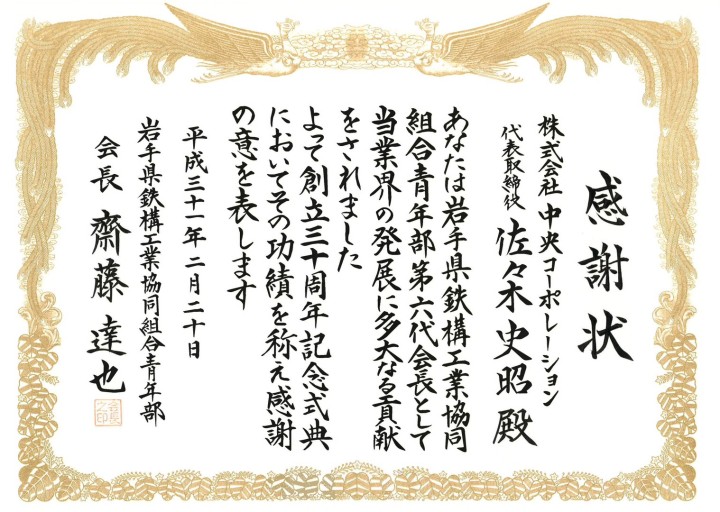 感謝状
株式会社 中央コーポレーション
代表取締役 佐々木史昭 殿
あなたは岩手県鉄構工業協同
組合青年部第六代会長として
当業界の発展に多大なる貢献
をされました
よって創立三十周年記念式典
においてその功績を称え感謝
の意を表します
平成三十一年二月二十日
岩手県鉄構工業協同組合青年部
会長 齋藤達也